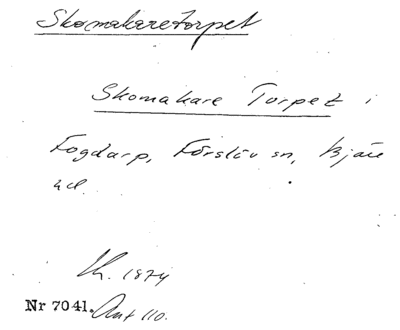 Skomakaretorpet
Skomakare Torpet i
Fogdarp, Förslöv sn, Bjäre
hd.
Lh. 1874
Nr 7041. Ant 110.